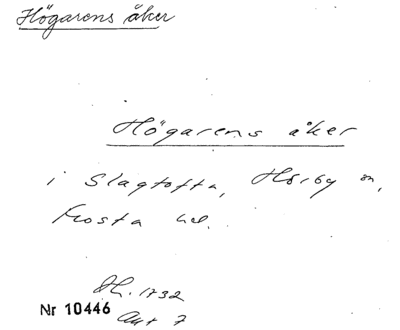 Högarens åker
Högarens åker
i Slagtofta, Hörby sn,
Frosta hd.
Dh. 1732
Nr 10446
Akt 7